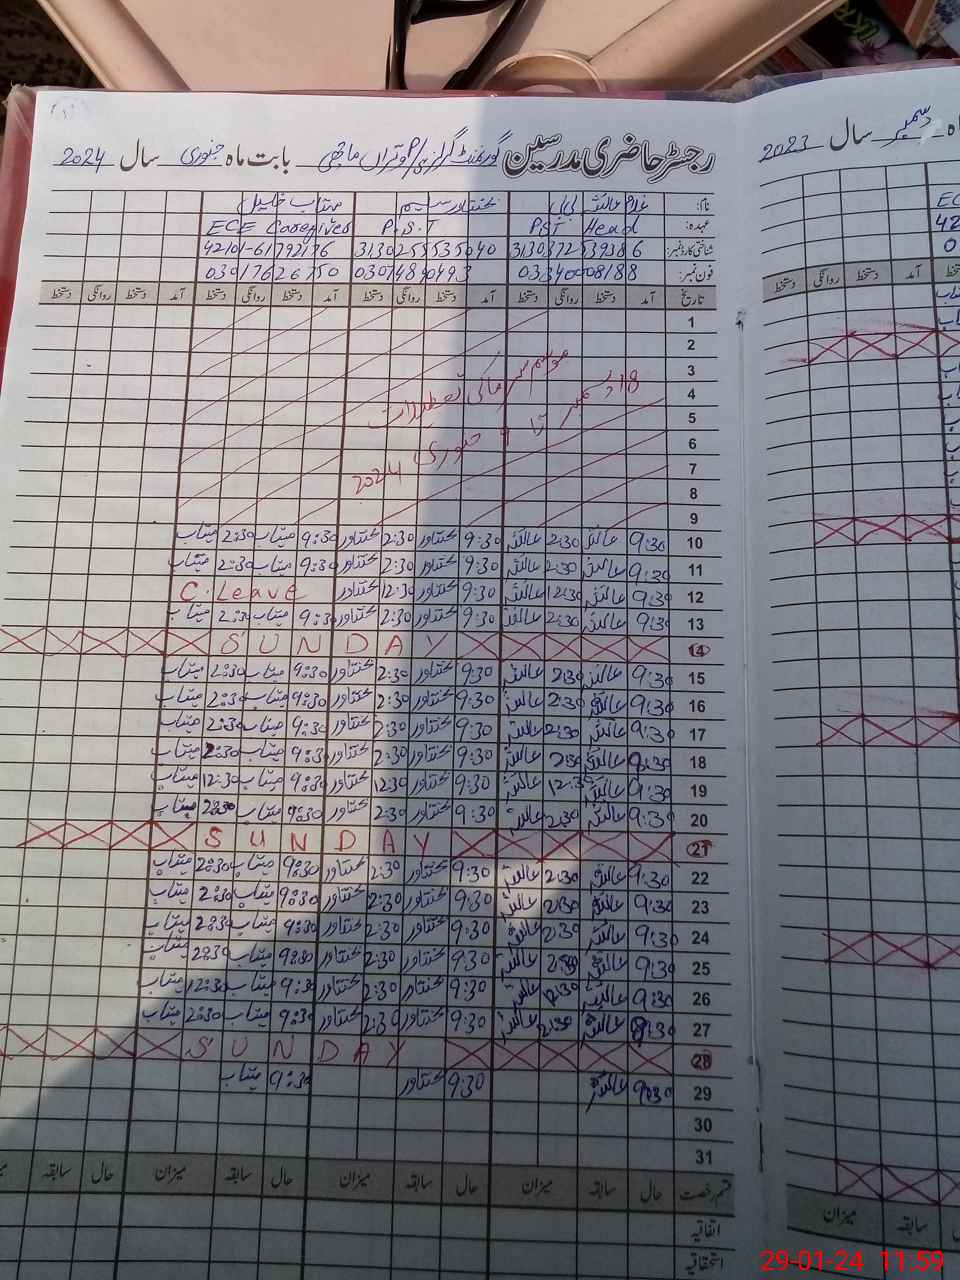 رجسٹر حاضری مدرسین گورنمنٹ گرلز پ/س وتراں ماچھی بابت ماہ جنوری سال 2024
نام: غلام عائشہ بی بی بختاور سلیم مہتاب خلیل
عہدہ: PST Head P.S.T ECE Caregiver
شناختی کارڈ نمبر: 42101-61792176
فون نمبر:
تاریخ آمد دستخط روانگی دستخط آمد دستخط روانگی دستخط آمد دستخط روانگی دستخط آمد دستخط روانگی دستخط
1
2
3
موسم سرما کی تعطیلات
4
18 دسمبر تا 9 جنوری 2024
5
6
7
8
9
10 9:30 عائشہ 2:30 عائشہ 9:30 بختاور 2:30 بختاور 9:30 مہتاب 2:30 مہتاب
11 9:30 عائشہ 2:30 عائشہ 9:30 بختاور 2:30 بختاور 9:30 مہتاب 2:30 مہتاب
12 9:30 عائشہ 12:30 عائشہ 9:30 بختاور 12:30 بختاور C. Leave
13 9:30 عائشہ 2:30 عائشہ 9:30 بختاور 2:30 بختاور 9:30 مہتاب 2:30 مہتاب
14 SUNDAY
15 9:30 عائشہ 2:30 عائشہ 9:30 بختاور 2:30 بختاور 9:30 مہتاب 2:30 مہتاب
16 9:30 عائشہ 2:30 عائشہ 9:30 بختاور 2:30 بختاور 9:30 مہتاب 2:30 مہتاب
17 9:30 عائشہ 2:30 عائشہ 9:30 بختاور 2:30 بختاور 9:30 مہتاب 2:30 مہتاب
18 9:30 عائشہ 2:30 عائشہ 9:30 بختاور 2:30 بختاور 9:30 مہتاب 2:30 مہتاب
19 9:30 عائشہ 12:30 عائشہ 9:30 بختاور 12:30 بختاور 9:30 مہتاب 12:30 مہتاب
20 9:30 عائشہ 2:30 عائشہ 9:30 بختاور 2:30 بختاور 9:30 مہتاب 2:30 مہتاب
21 SUNDAY
22 9:30 عائشہ 2:30 عائشہ 9:30 بختاور 2:30 بختاور 9:30 مہتاب 2:30 مہتاب
23 9:30 عائشہ 2:30 عائشہ 9:30 بختاور 2:30 بختاور 9:30 مہتاب 2:30 مہتاب
24 9:30 عائشہ 2:30 عائشہ 9:30 بختاور 2:30 بختاور 9:30 مہتاب 2:30 مہتاب
25 9:30 عائشہ 2:30 عائشہ 9:30 بختاور 2:30 بختاور 9:30 مہتاب 2:30 مہتاب
26 9:30 عائشہ 12:30 عائشہ 9:30 بختاور 2:30 بختاور 9:30 مہتاب 12:30 مہتاب
27 9:30 عائشہ 2:30 عائشہ 9:30 بختاور 2:30 بختاور 9:30 مہتاب 2:30 مہتاب
28 SUNDAY
29 9:30 عائشہ 9:30 بختاور 9:30 مہتاب
30
31
قسم رخصت حال سابقہ میزان حال سابقہ میزان حال سابقہ میزان حال سابقہ
اتفاقیہ
استحقاقیہ
ماہ دسمبر سال 2023
روانگی دستخط
حال سابقہ میزان
29-01-24 11:59